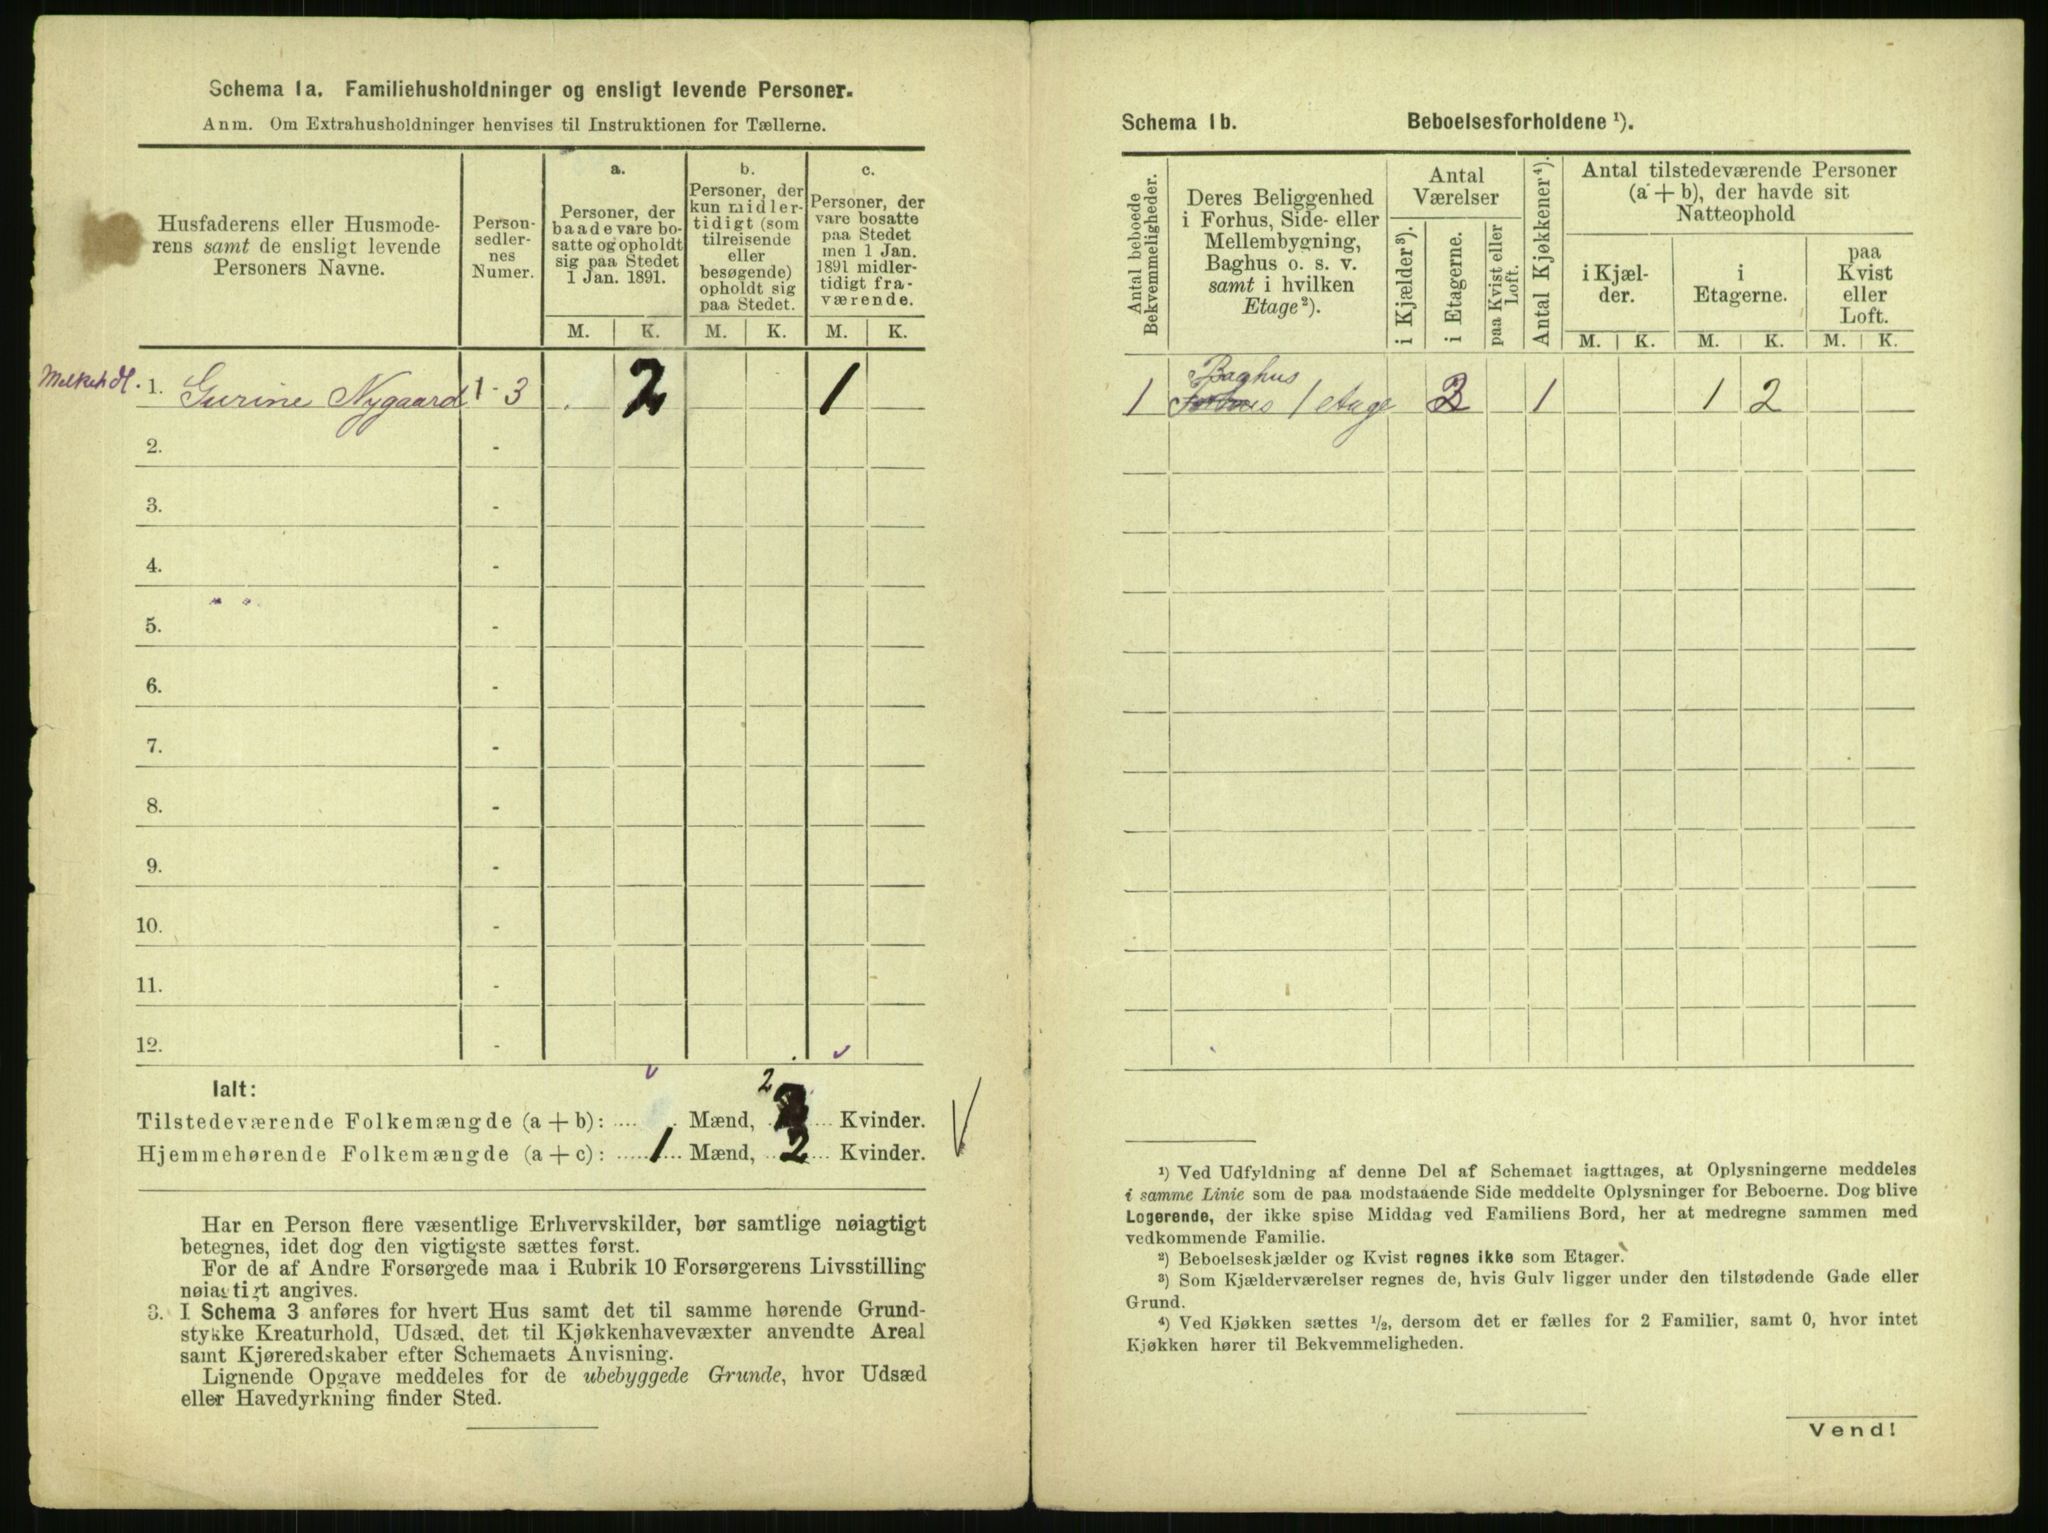 Schema 1a. Familiehusholdninger og ensligt levende Personer.
Anm. Om Extrahusholdninger henvises til Instruktionen for Tællerne.
Husfaderens eller Husmode-
rens samt de ensligt levende
Personers Navne.
Person-
sedler-
nes
Numer.
a.
Personer, der
baade vare bo-
satte og opholdt
sig paa Stedet
1 Jan. 1891.
b.
Personer, der
kun midler-
tidigt (som
tilreisende
eller
besøgende)
opholdt sig
paa Stedet.
c.
Personer, der
vare bosatte
paa Stedet
men 1 Jan.
1891 midler-
tidigt fra-
værende.
M. K. M. K. M. K.
Melkehdl. 1. Gurine Nygaard 1 - 3 2 1
2. -
3. -
4. -
5. -
6. -
7. -
8. -
9. -
10. -
11. -
12. -
Ialt:
2
Tilstedeværende Folkemængde (a + b): .... Mænd, ... Kvinder.
Hjemmehørende Folkemængde (a + c): ..... 1 ... Mænd, ... 2 ... Kvinder.
Har en Person flere væsentlige Erhvervskilder, bør samtlige nøiagtigt
betegnes, idet dog den vigtigste sættes først.
For de af Andre Forsørgede maa i Rubrik 10 Forsørgerens Livsstilling
nøiagtigt angives.
3. I Schema 3 anføres for hvert Hus samt det til samme hørende Grund-
stykke Kreaturhold, Udsæd, det til Kjøkkenhavevæxter anvendte Areal
samt Kjøreredskaber efter Schemaets Anvisning.
Lignende Opgave meddeles for de ubebyggede Grunde, hvor Udsæd
eller Havedyrkning finder Sted.
Schema 1b. Beboelsesforholdene ¹).
Antal beboede
Bekvemmeligheder.
Deres Beliggenhed
i Forhus, Side- eller
Mellembygning,
Baghus o. s. v.
samt i hvilken
Etage²).
Antal
Værelser
i Kjælder³).
i Etagerne.
paa Kvist eller
Loft.
Antal Kjøkkener⁴).
Antal tilstedeværende Personer
(a + b), der havde sit
Natteophold
i Kjæl-
der.
i
Etagerne.
paa
Kvist
eller
Loft.
M. K. M. K. M. K.
Baghus
1 Forhus 1 etage 1 1 2
¹) Ved Udfyldning af denne Del af Schemaet iagttages, at Oplysningerne meddeles
i samme Linie som de paa modstaaende Side meddelte Oplysninger for Beboerne. Dog blive
Logerende, der ikke spise Middag ved Familiens Bord, her at medregne sammen med
vedkommende Familie.
²) Beboelseskjælder og Kvist regnes ikke som Etager.
³) Som Kjælderværelser regnes de, hvis Gulv ligger under den tilstødende Gade eller
Grund.
⁴) Ved Kjøkken sættes ½, dersom det er fælles for 2 Familier, samt 0, hvor intet
Kjøkken hører til Bekvemmeligheden.
Vend!